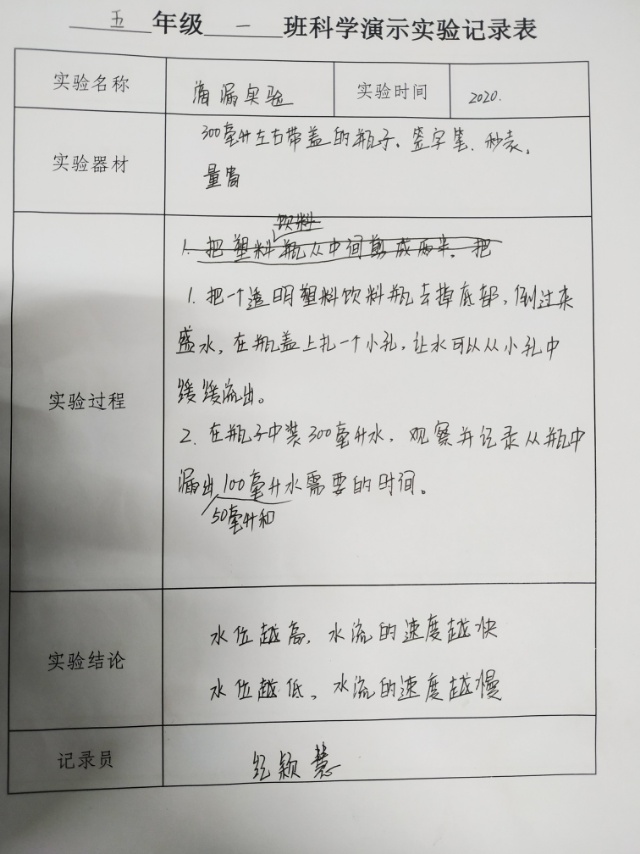 五年级一班科学演示实验记录表
实验名称 滴漏实验 实验时间 2020.
实验器材
300毫升左右带盖的瓶子、签字笔、秒表、
量筒
饮料
1、把塑料瓶从中间剪成两半。把
1. 把一个透明塑料饮料瓶去掉底部，倒过来
盛水，在瓶盖上扎一个小孔，让水可以从小孔中
缓缓流出。
实验过程
2. 在瓶子中装300毫升水，观察并记录从瓶中
漏出100毫升水需要的时间。
50毫升和
实验结论
水位越高，水流的速度越快
水位越低、水流的速度越慢
记录员 纪颖慧